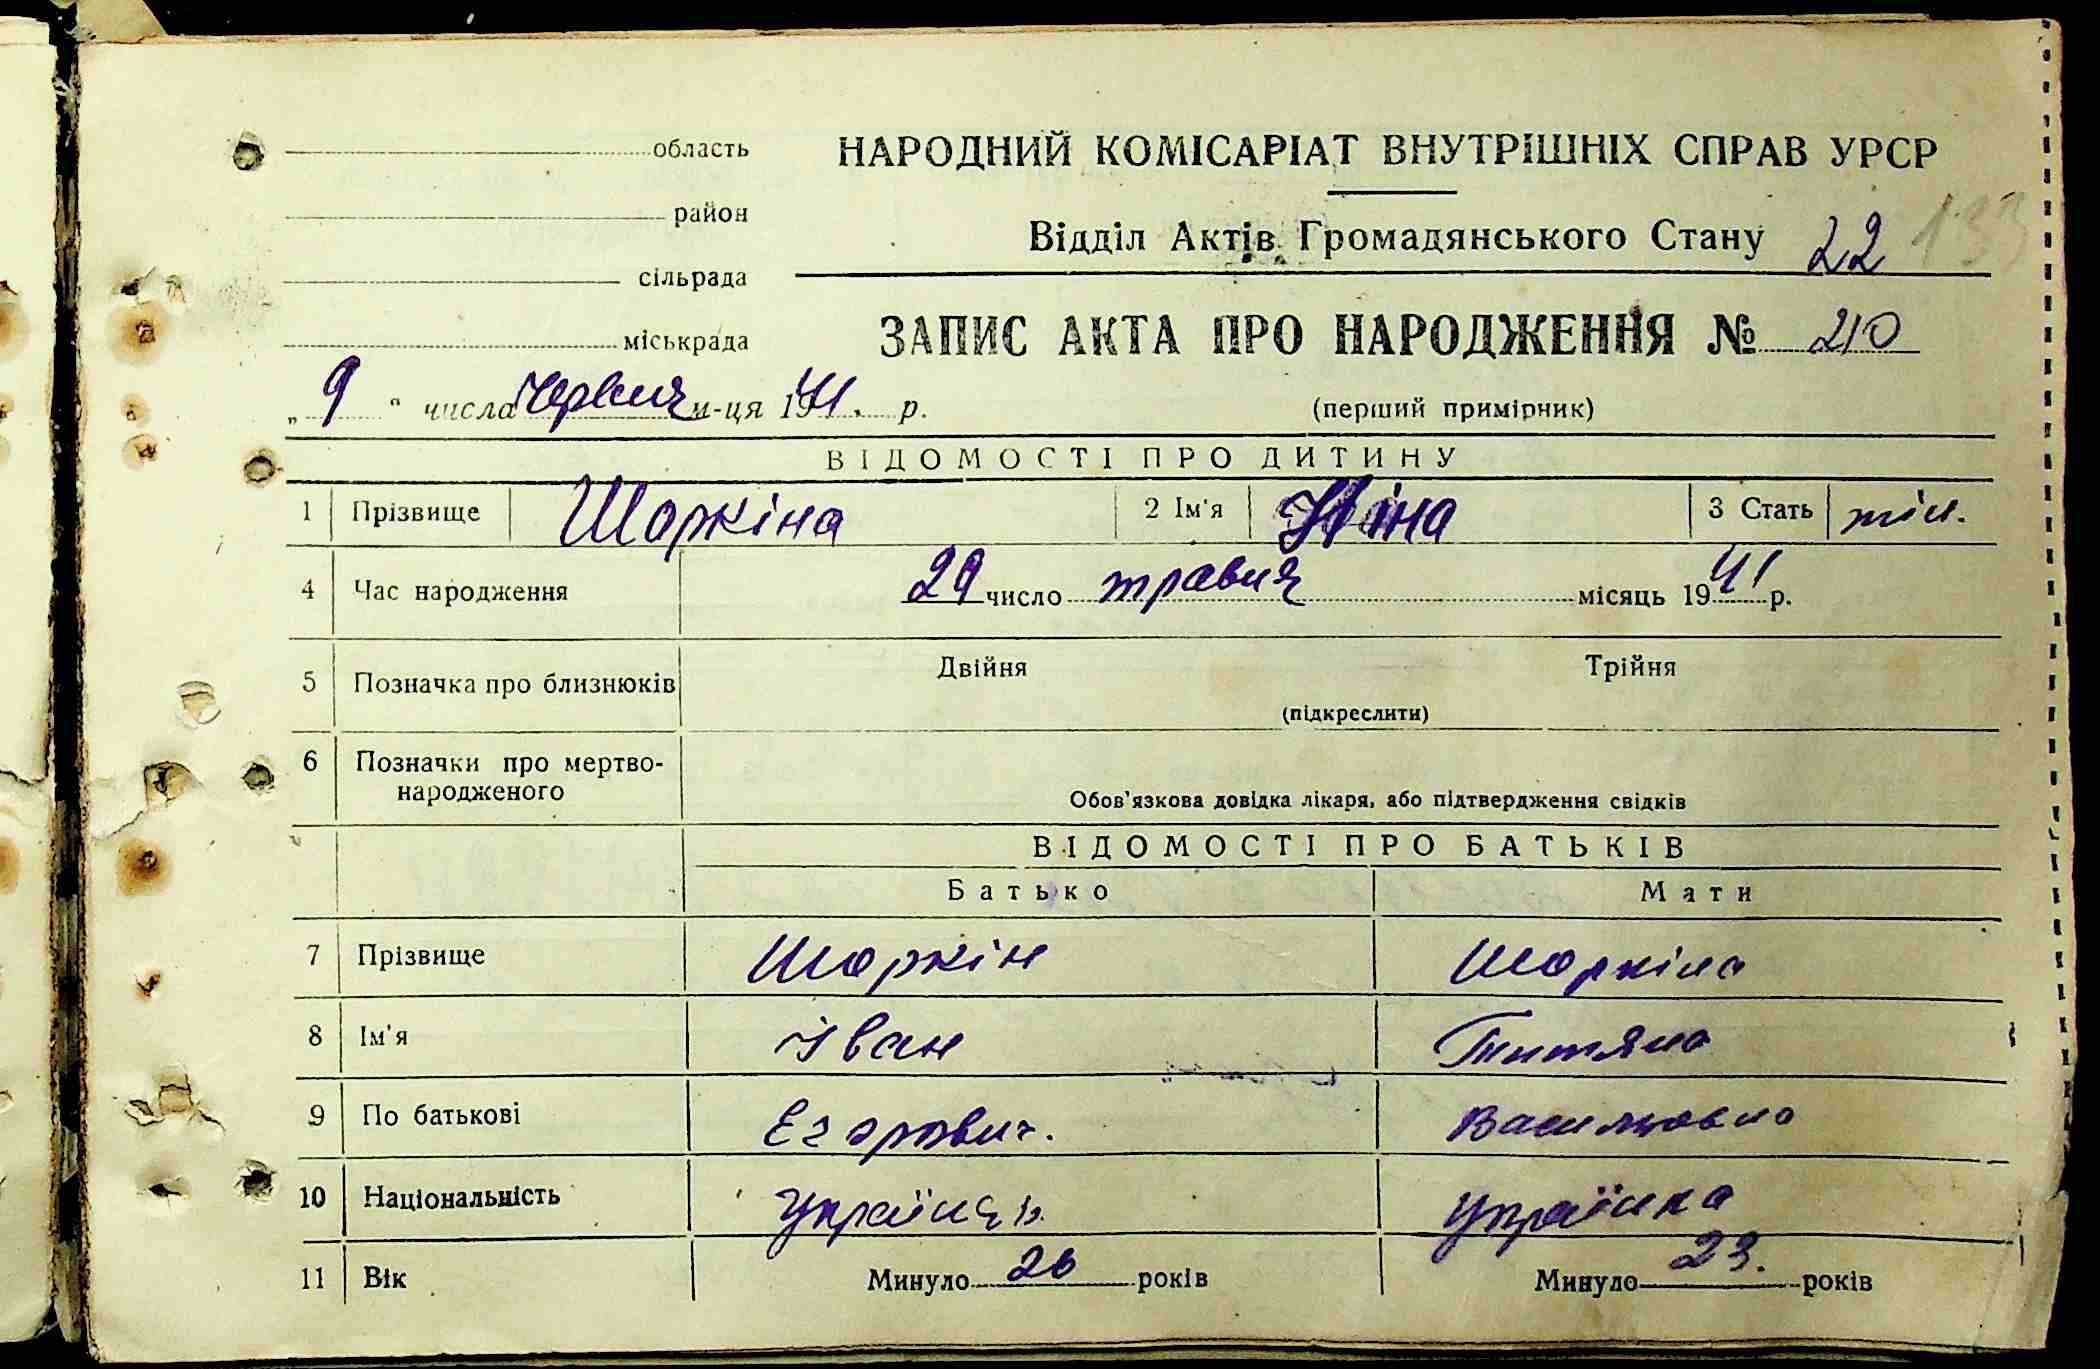 область
НАРОДНИЙ КОМІСАРІАТ ВНУТРІШНІХ СПРАВ УРСР
район
Відділ Актів Громадянського Стану 22 133
сільрада
міськрада
ЗАПИС АКТА ПРО НАРОДЖЕННЯ № 210
„ 9 “ числа червня м-ця 1941. р.
(перший примірник)
ВІДОМОСТІ ПРО ДИТИНУ
1 Прізвище Шоркіна 2 Ім'я Ніна 3 Стать жін.
4 Час народження 29 число травня місяць 1941 р.
5 Позначка про близнюків Двійня Трійня
(підкреслити)
6 Позначки про мертво-
народженого
Обов'язкова довідка лікаря, або підтвердження свідків
ВІДОМОСТІ ПРО БАТЬКІВ
Батько Мати
7 Прізвище Шоркін Шоркіна
8 Ім'я Іван Титяна
9 По батькові Егорович. Васильовна
10 Національність Українець. Українка
11 Вік Минуло 26 років Минуло 23. років